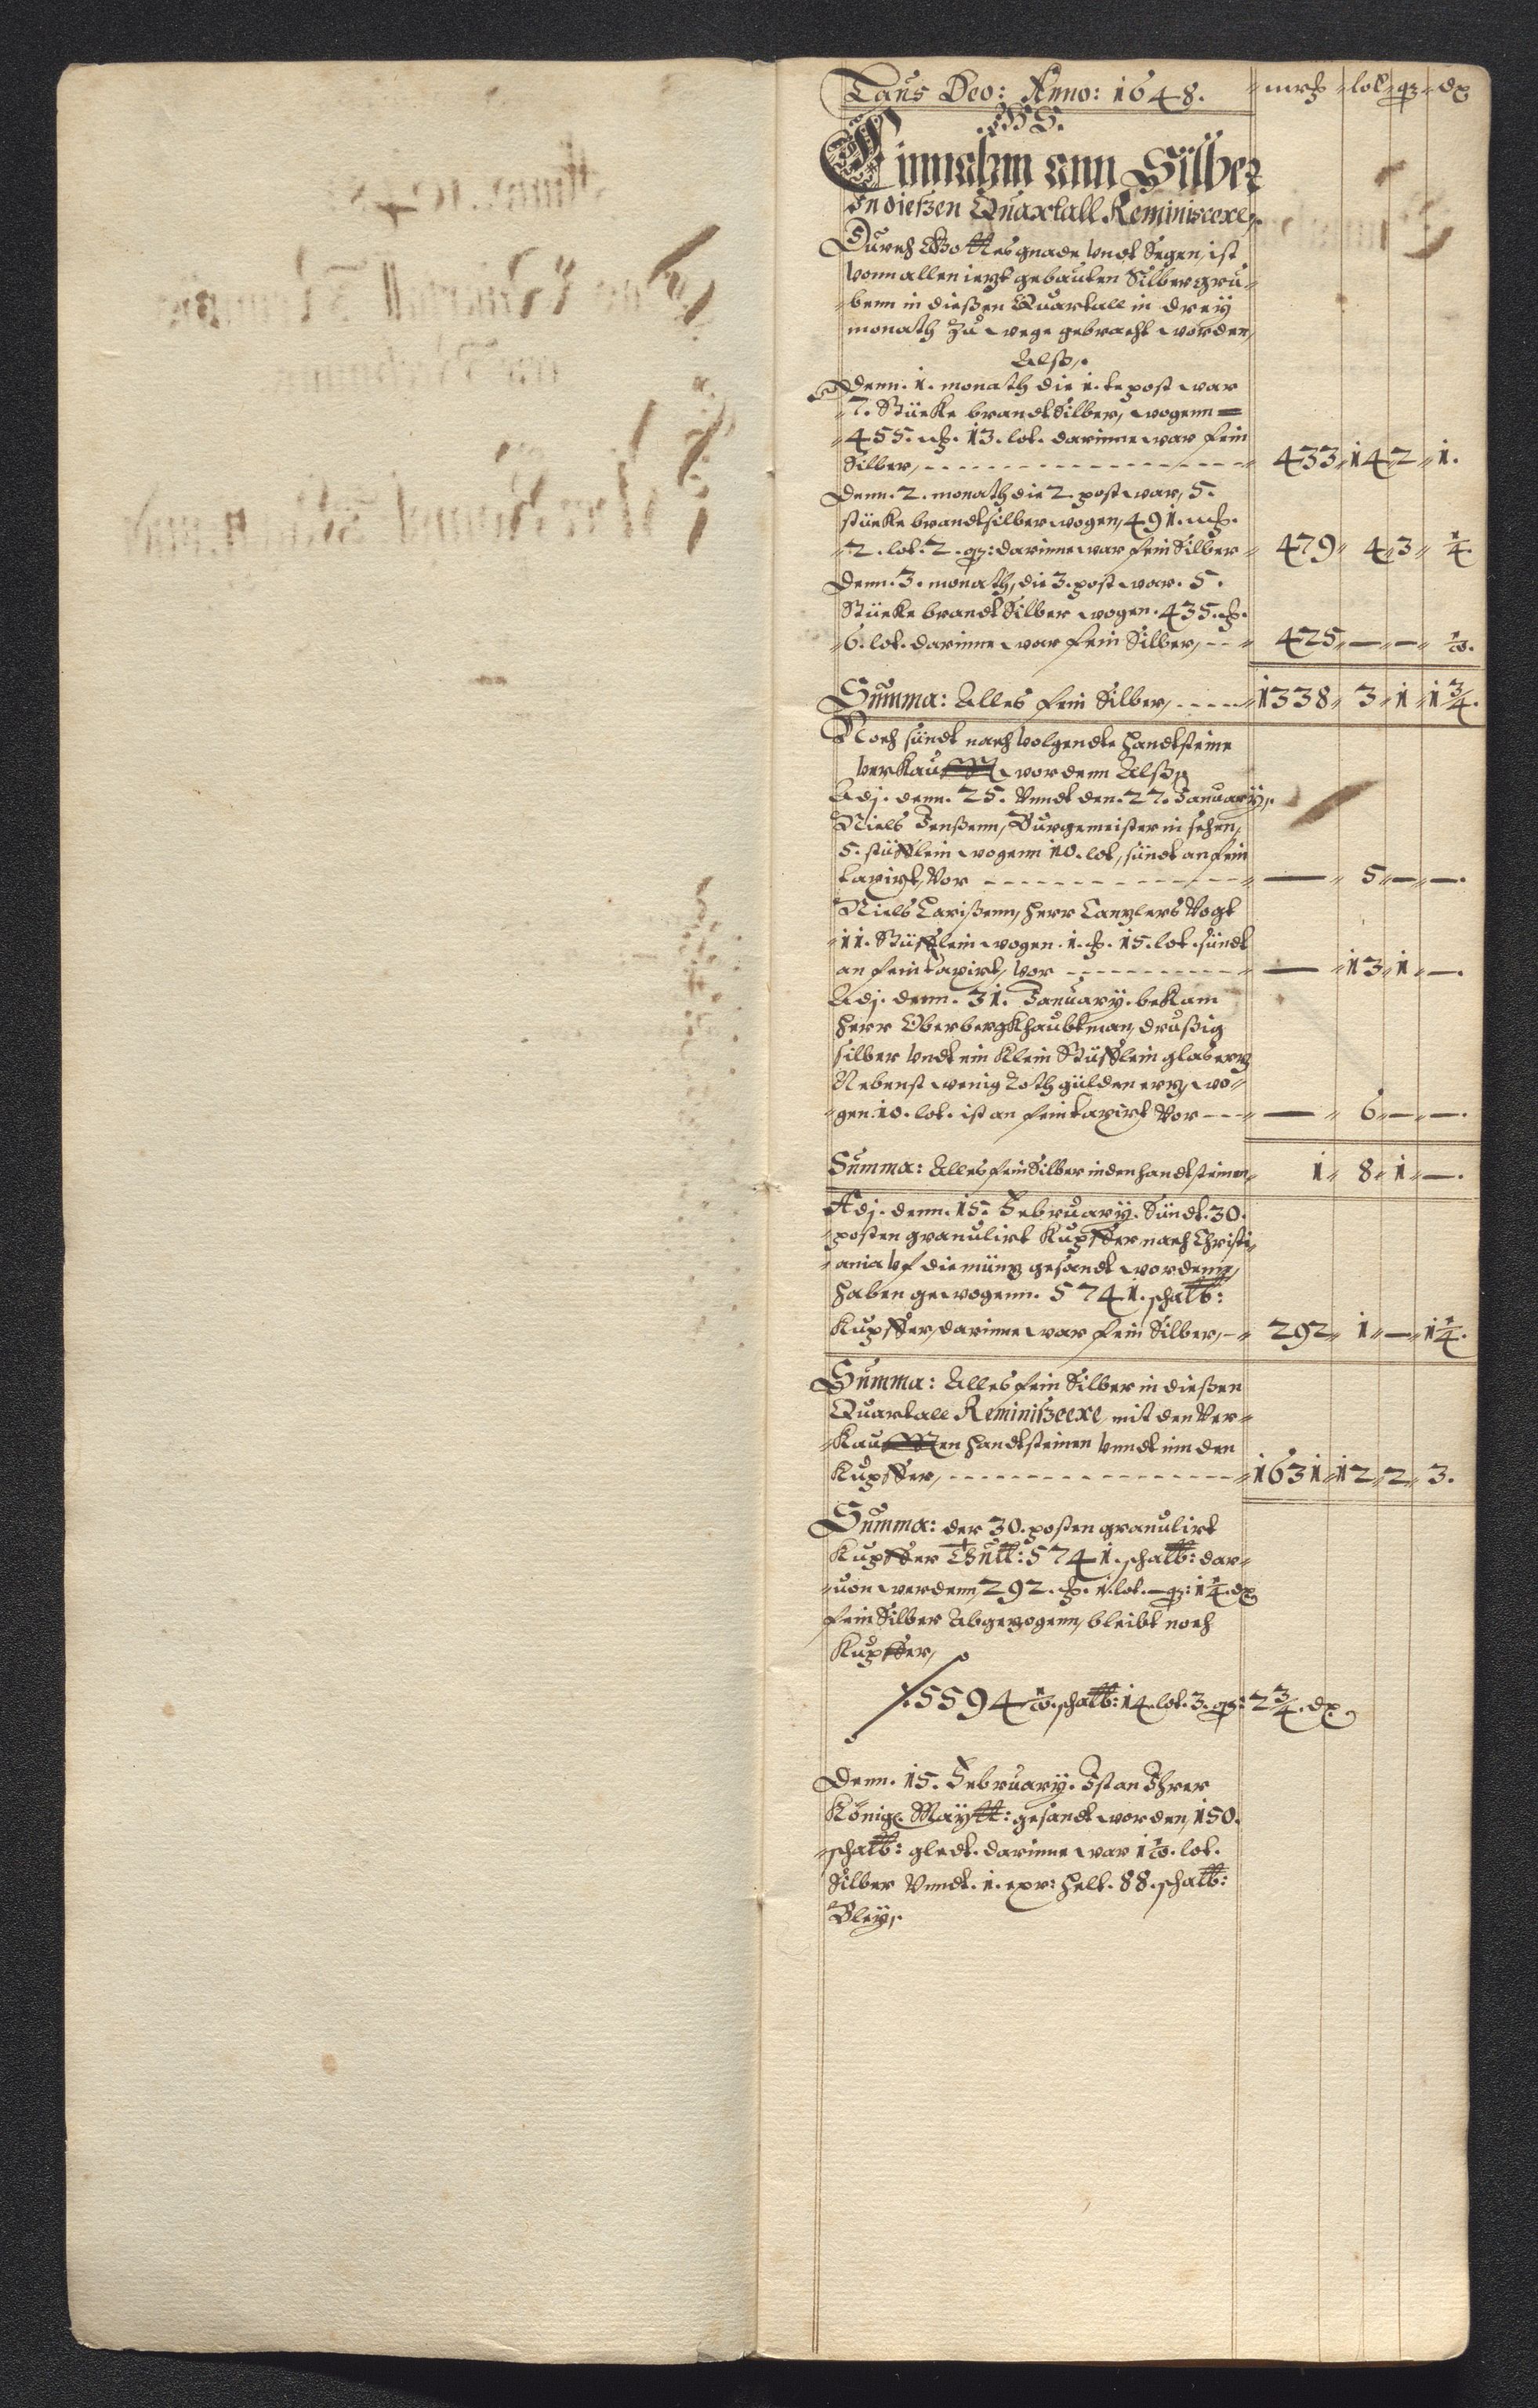 Laus Deo: Anno: 1648. mrk lot q dx
Einnahm ann Silber
In dießen Quartall Reminiscere,
Durch Gottes gnade Undt Segen, ist
Vonn allen iezt gebauten Silbergru-
benn in dießen Quartall in dreÿ
monath Zu wege gebracht worden,
Alß,
Denn. 1. monath die 1. te post war
7. Stücke brandtSilber, wogenn
455. mk. 13. lot. darinne war fein
Silber, 433 14 2 1.
Denn. 2. monath die 2. post war, 5.
stücke brandtsilber wogen, 491. mk.
2. lot. 2. q: darinne war fein Silber 479 4 3 1/4.
Denn. 3. monath, die 3. post war. 5.
Stücke brandtSilber wogen. 435. mk.
6. lot. darinne war fein Silber, 425 — — 1/2.
Summa: Alles fein Silber, 1338 3 1 1 3/4.
Noch sündt nachVolgendte handtsteine
Verkaufft wordenn Alß,
Adj. denn. 25. Vnndt den. 27. Januarÿ,
Niels Jenßenn, Burgemeister in Schen,
5. stüfflein wogenn 10. lot, sündt an fein
taxirt, Vor — 5 — —.
Niels Larißenn, Herr Canzlers Vogt
11. Stüfflein wogen. 1. mk. 15. lot. sündt
an fein taxirt, Vor — 13 1 —.
Adj. denn. 31. Januarÿ. bekam
Herr OberbergKhaubtman, drußig
silber Undt ein klein Stüfflein glaserz
Nebenst wenig Rothgülden erz, wo-
gen. 10. lot. ist an fein taxirt Vor — 6 — —.
Summa: Alles fein Silber in den handtsteinen, 1 8 1 —.
Adj. denn. 15. Februarÿ. Sündt. 30.
posten granulirt Kupffer nach Christi-
ania Uf die münz gesandt wordenn,
haben gewogenn. 5741. schalb:
Kupffer, darinne war fein Silber, 292 1 — 1 1/4.
Summa: Alles fein Silber in dießen
Quartall Reminißcere, mit den Ver-
kaufften handtsteinen Vnndt inn den
Kupffer, 1631 12 2 3.
Summa: der 30. posten granulirt
Kupffer Thutt: 5741. schalb: dar-
uon werdenn, 292. mk. 1. lot. — q: 1 1/4. dx
fein Silber Abgezogenn, bleibt noch
Kupffer,
5594 1/2. schalb: 14. lot. 3. q: 2 3/4. dx
Denn. 15. Februarÿ. Ist an Ihrer
Königl. Maÿtt: gesandt worden, 150.
schalb: gledt. darinne war 1 1/2. lot.
Silber Vnndt. 1. helt. 88. schalb:
Bleÿ,